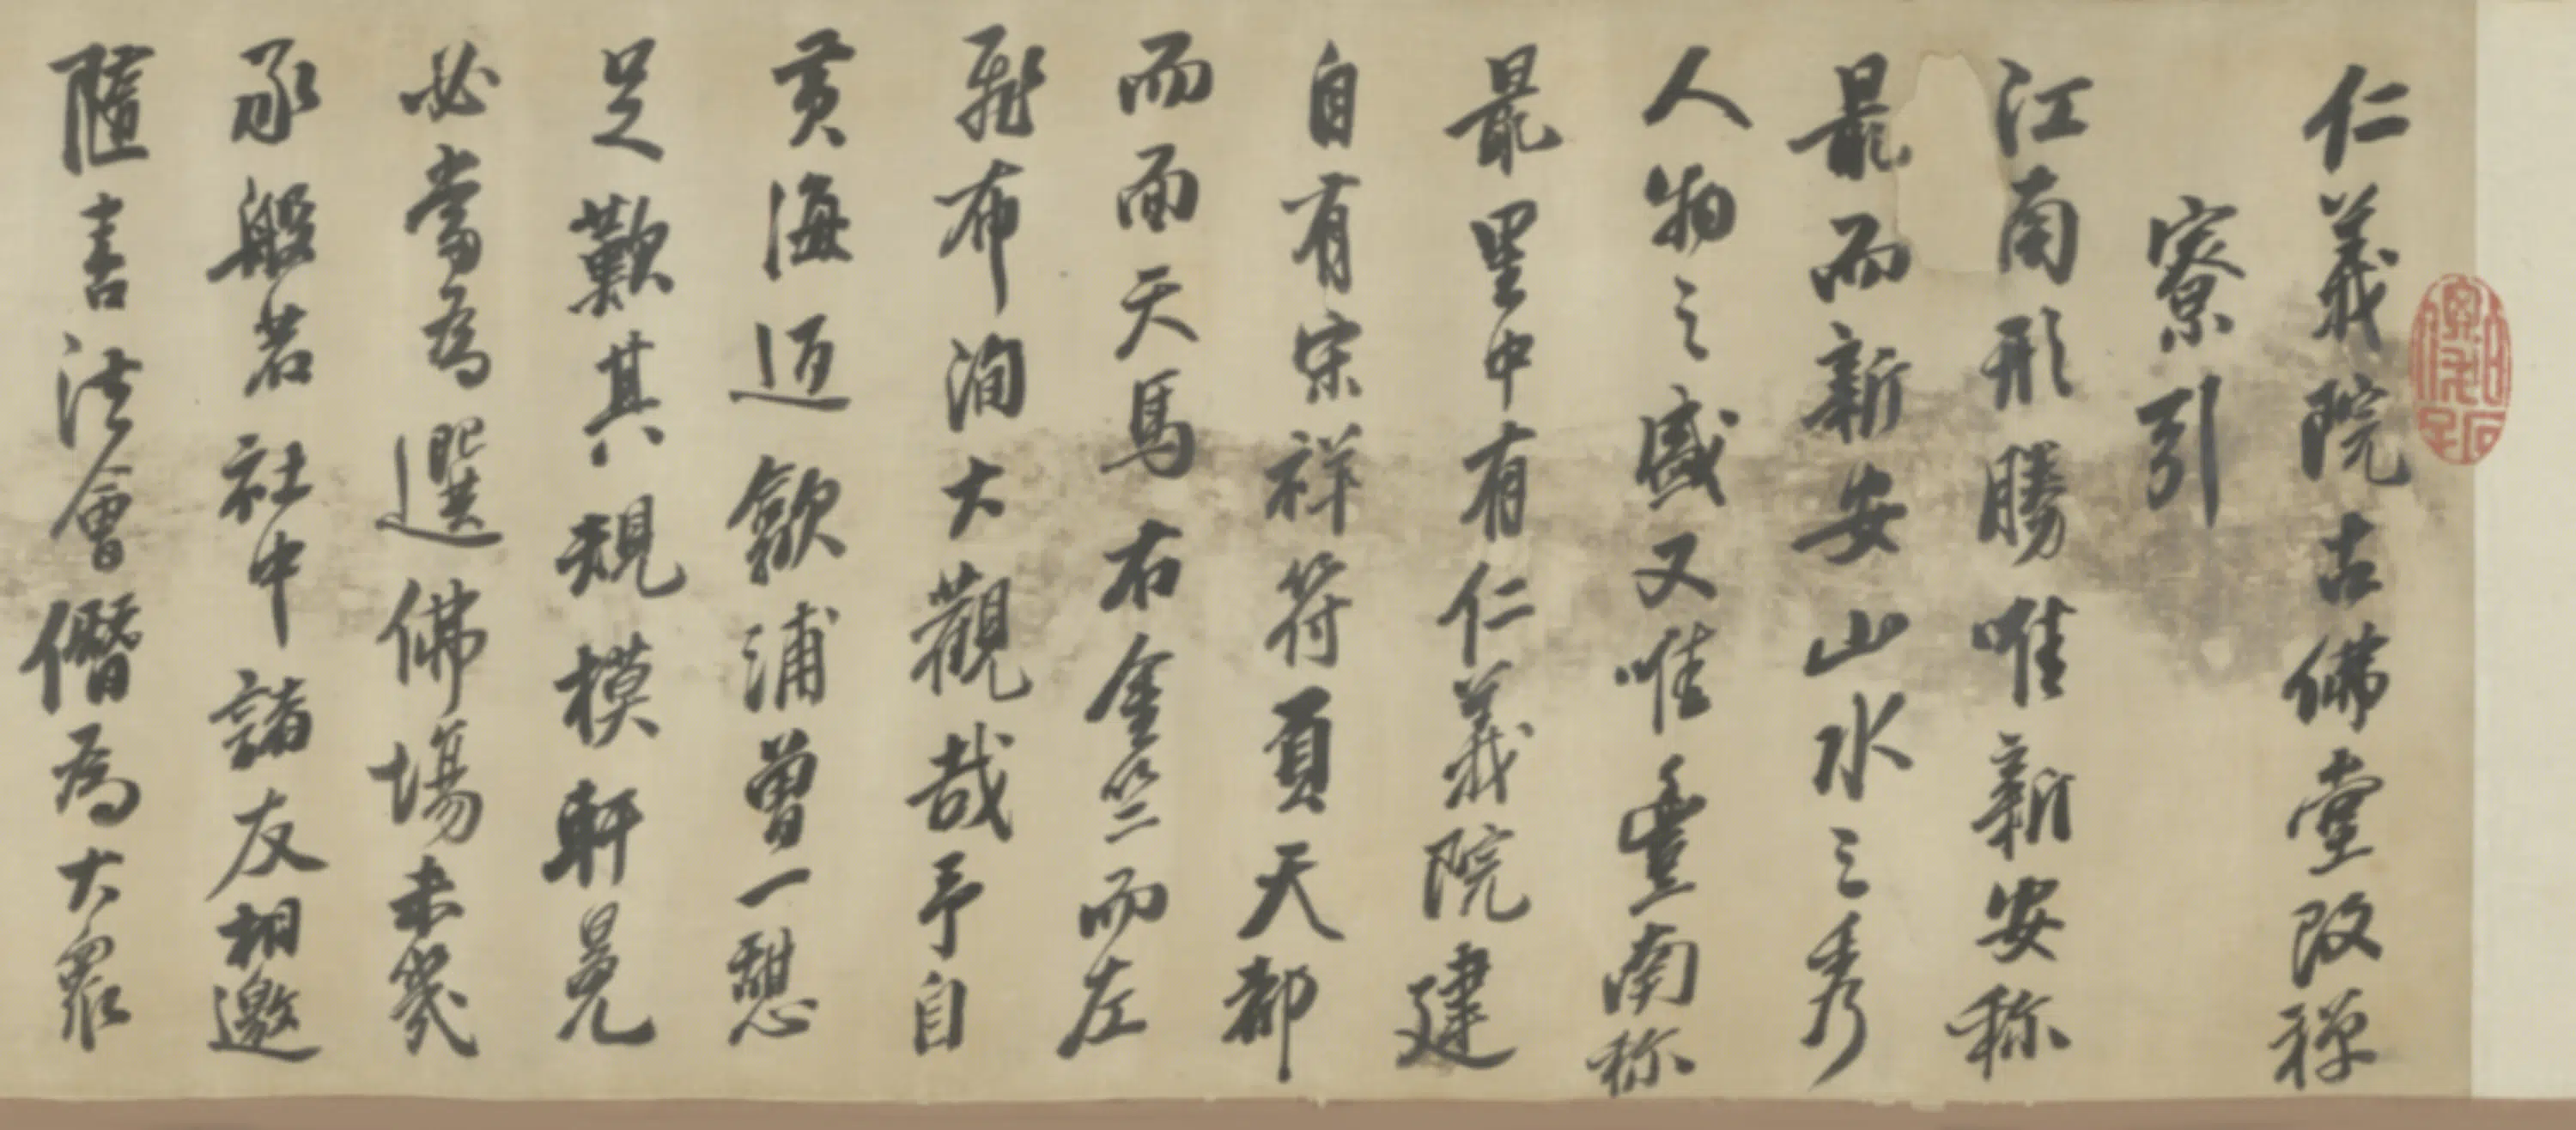 仁義院古佛堂改禪
寮引
江南形勝唯新安称
最而新安山水之秀
人物之盛又唯豊南称
最里中有仁義院建
自有宋祥符負天都
而面天馬右金竺而左
飛布洵大觀哉予自
黄海迈歙浦曾一憩
足歎其規模軒晃
必當為選佛場未幾
承般若社中諸友相邀
隨喜法會僭為大衆